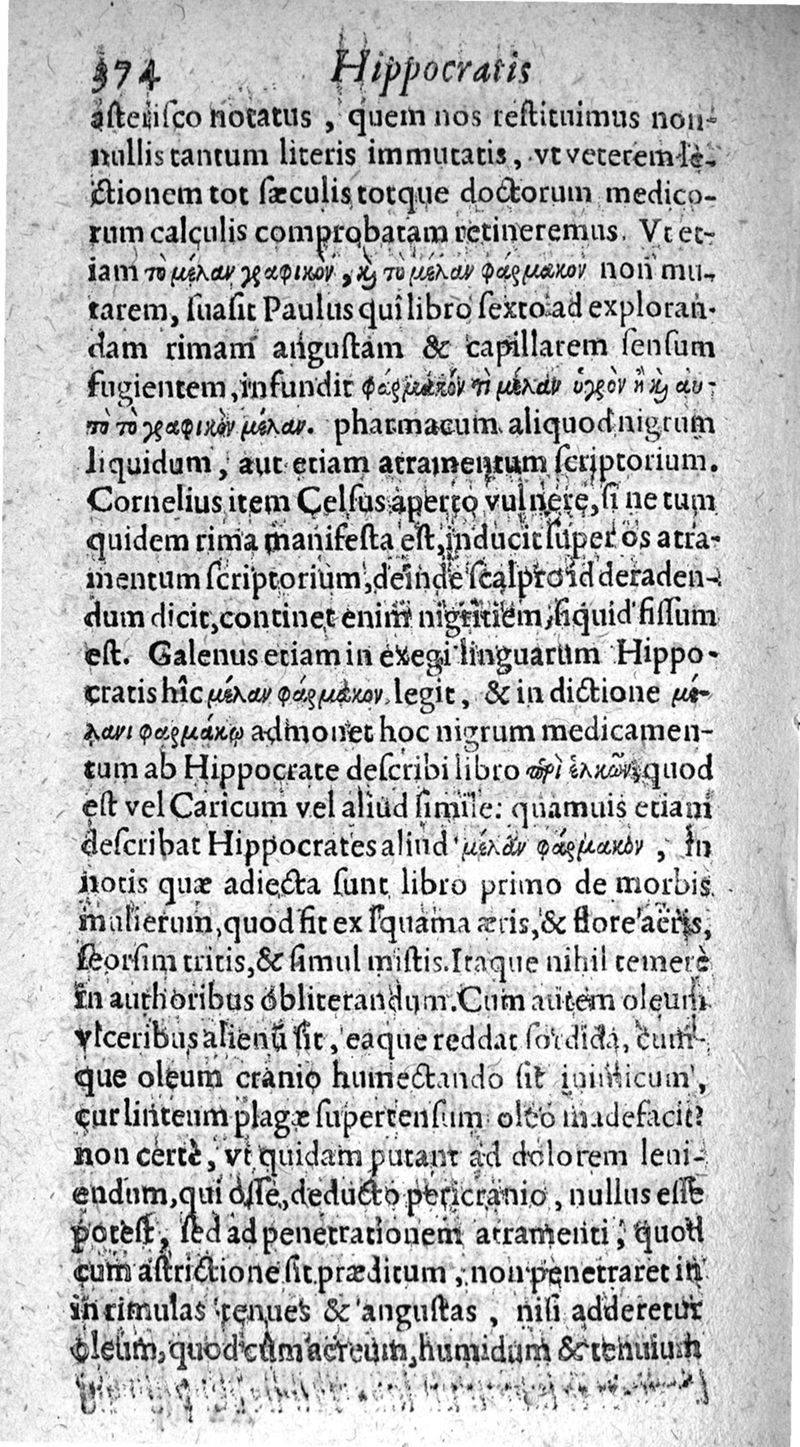 374 Hippocratis
asterisco notatus, quem nos restituimus non-
nullis tantum literis immutatis, vt veterem le-
ctionem tot sæculis totque doctorum medico-
rum calculis comprobatam retineremus. Vt et-
iam τὸ μέλαν γραφικὸν, καὶ τὸ μέλαν φάρμακον non mu-
tarem, suasit Paulus qui libro sexto ad exploran-
dam rimam angustam & capillarem sensum
fugientem, infundit φάρμακόν τι μέλαν ὑγρὸν ἢ καὶ αυ-
τὸ τὸ γραφικὸν μέλαν. pharmacum aliquod nigrum
liquidum, aut etiam atramentum scriptorium.
Cornelius item Celsus aperto vulnere, si ne tum
quidem rima manifesta est, inducit super os atra-
mentum scriptorium, deinde scalpro id deraden-
dum dicit, continet enim nigritiem, siquid fissum
est. Galenus etiam in exegi linguarum Hippo-
cratis hîc μέλαν φάρμακον legit, & in dictione μέ-
λανι φαρμάκῳ admonet hoc nigrum medicamen-
tum ab Hippocrate describi libro περὶ ἑλκῶν, quod
est vel Caricum vel aliud simile: quamuis etiam
describat Hippocrates aliud μέλαν φάρμακον, In
notis quæ adiecta sunt libro primo de morbis
mulierum, quod fit ex squama æris, & flore aeris,
seorsim tritis, & simul mistis. Itaque nihil temerè
in authoribus obliterandum. Cum autem oleum
vlceribus alienũ sit, eaque reddat sordida, cum-
que oleum cranio humectando sit inimicum,
cur linteum plagæ supertensum oleo madefacit?
non certè, vt quidam putant ad dolorem leni-
endum, qui osse, deducto pericranio, nullus esse
potest, sed ad penetrationem atramenti, quod
cum astrictione sit præditum, non penetraret in
in rimulas tenues & angustas, nisi adderetur
oleum, quod cùm aëreum, humidum & tenuium